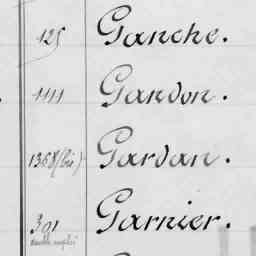 125 Ganche.
1111 Gandon.
1368 (bis) Gardan.
391 Garnier.